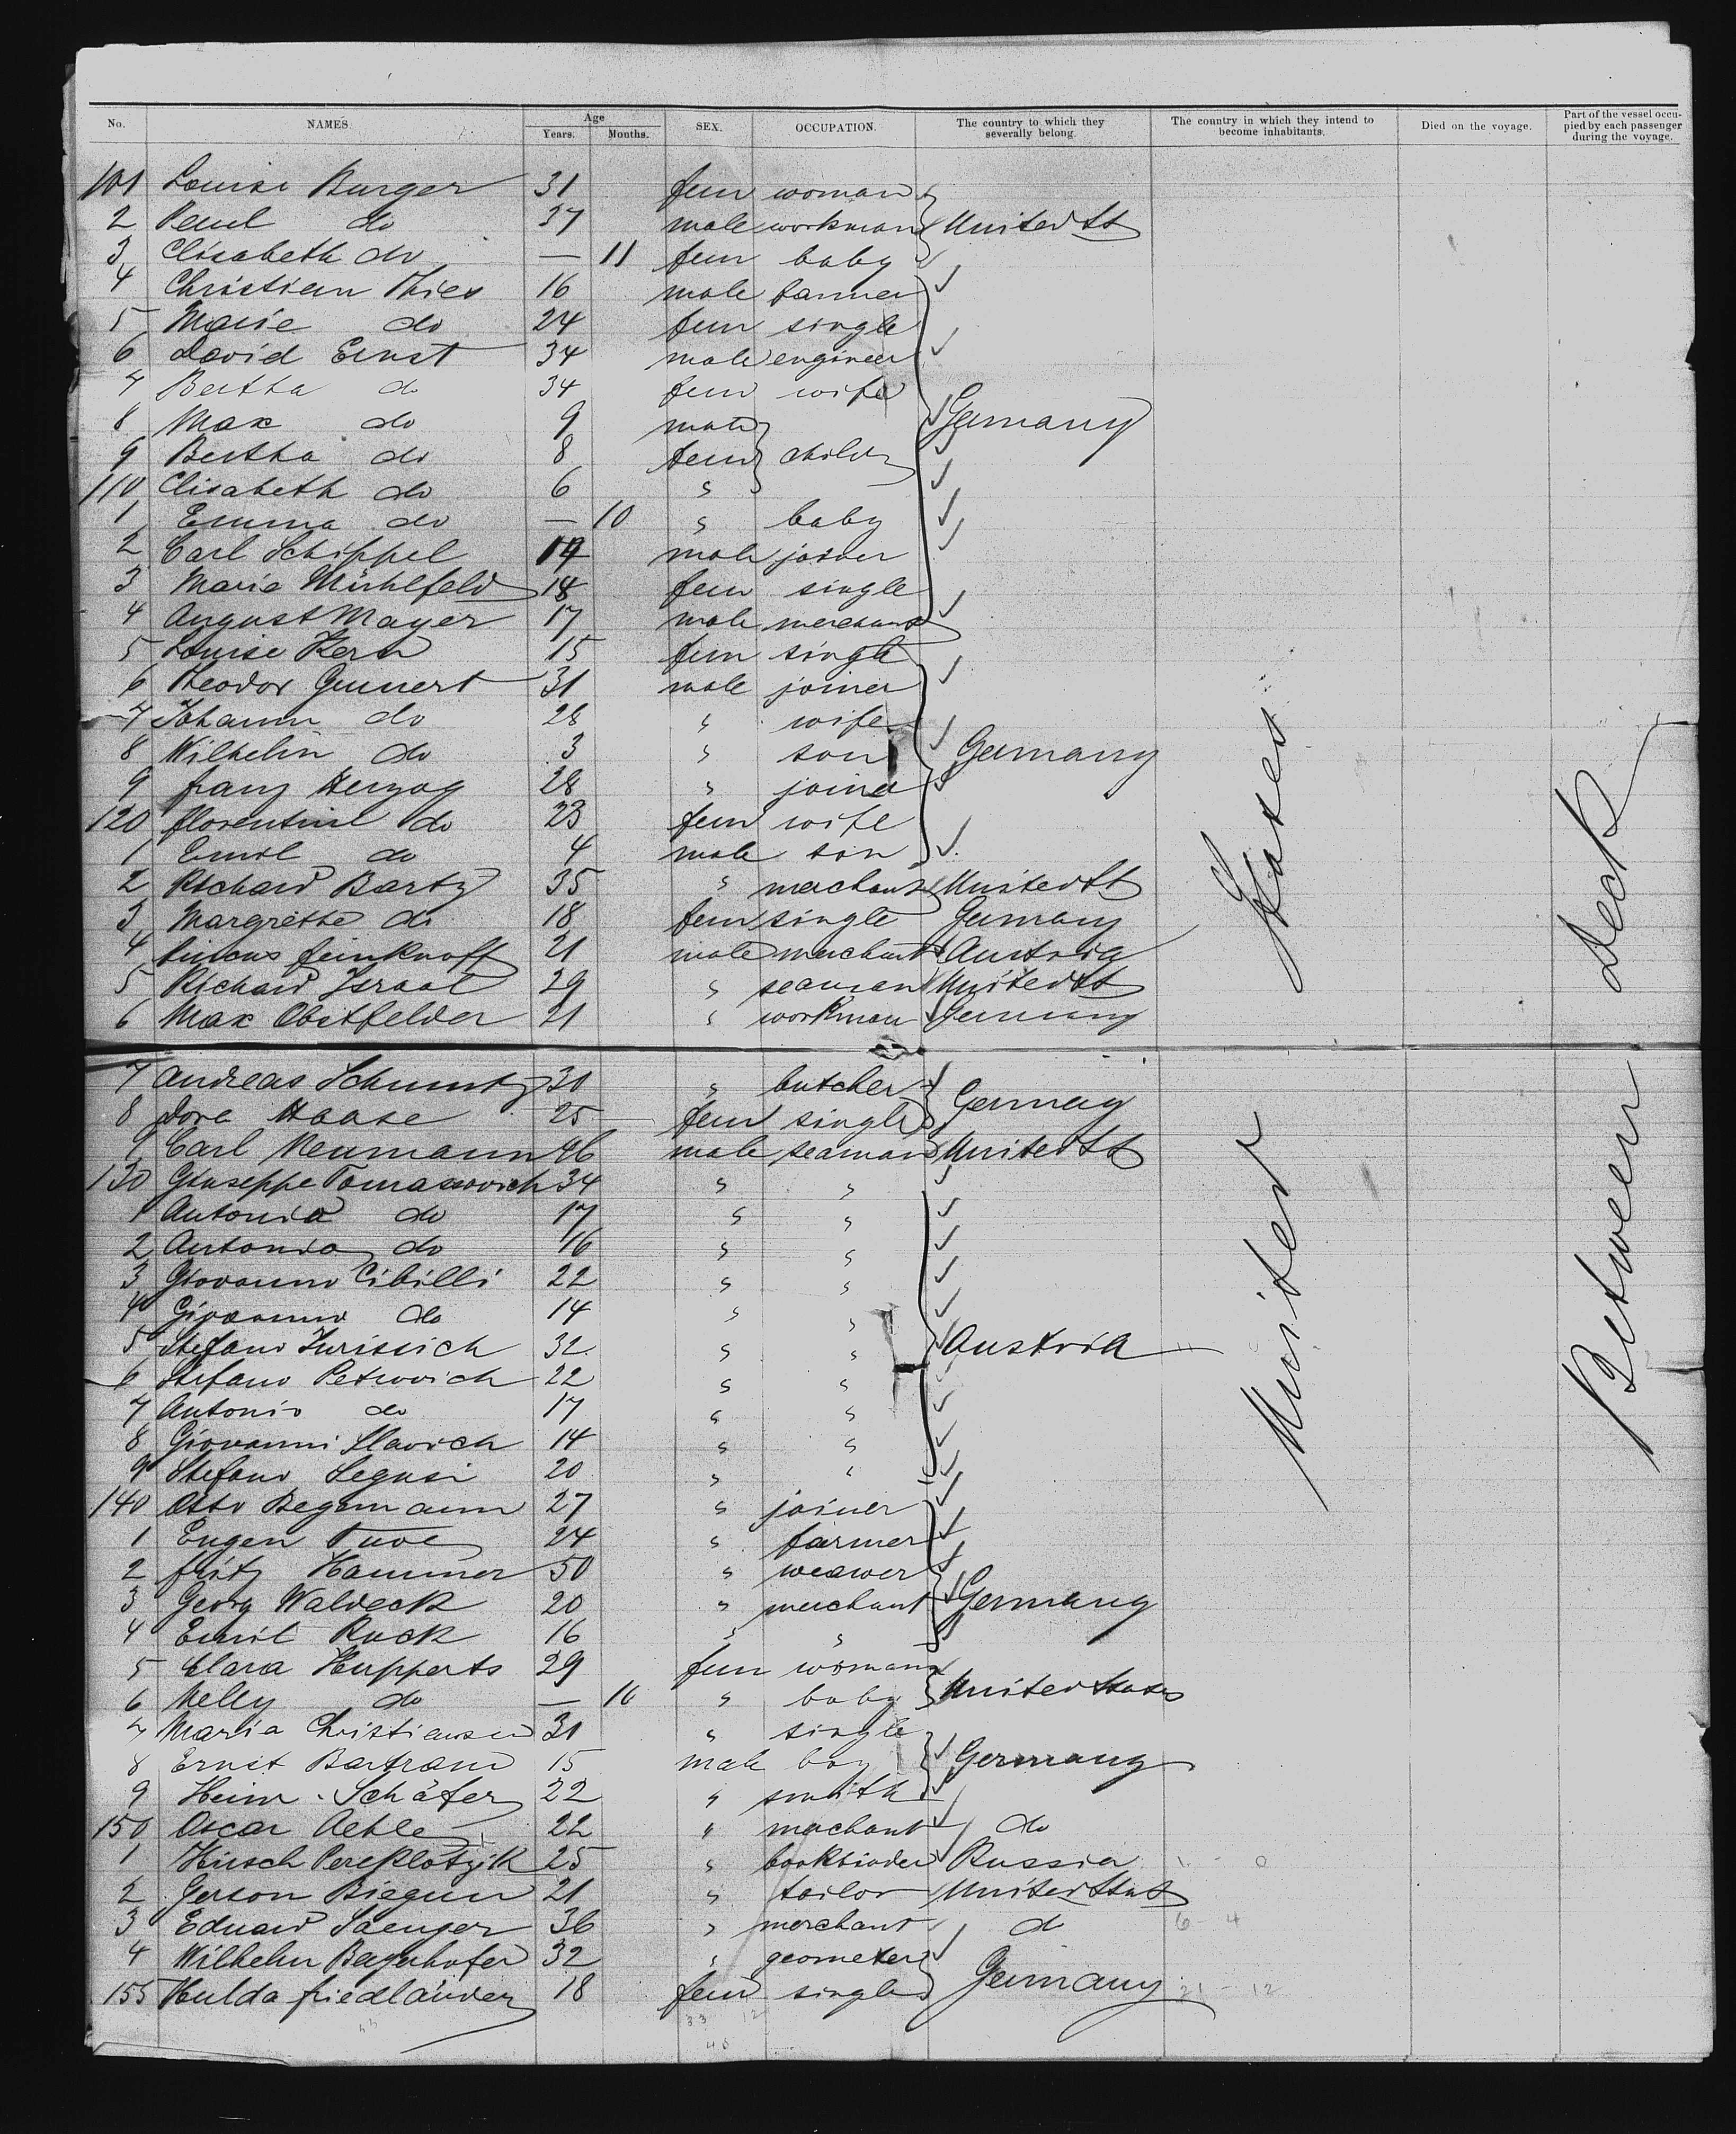 No. NAMES. Age Years. Months. SEX. OCCUPATION. The country to which they severally belong. The country in which they intend to become inhabitants. Died on the voyage. Part of the vessel occupied by each passenger during the voyage.
101 Louise Burger 31 fem woman
2 Paul do 37 male workman United St
3 Elisabeth do — 11 fem baby
4 Christian Thies 16 male farmer
5 Marie do 24 fem single
6 David Ernst 34 male engineer
7 Bertha do 34 fem wife
8 Max do 9 male Germany
9 Bertha do 8 fem childr
110 Elisabeth do 6 "
1 Emma do — 10 " baby
2 Carl Schippel male joiner
3 Marie Mühlfeld 18 fem single
4 August Mayer 17 male merchant
5 Louise Kern 15 fem single
6 Theodor Grunert 31 male joiner
7 Johann do 28 " wife
8 Wilhelm do 3 " son Germany
9 Franz Herzog 28 " joiner
120 Florentine do 23 fem wife
1 Emil do 4 male son
2 Richard Bartz 35 " merchant United St
3 Margrethe do 18 fem single Germany
4 21 male merchant Austria
5 Richard Israel 29 " seaman United St
6 Max Obstfelder 21 " workman Germany
7 Andreas Schmuntz 30 " butcher
8 Dora Haase 25 fem single Germany
9 Carl Neumann 46 male seaman United St
130 Giuseppe Tomasovich 34 " "
1 Antonio do 17 " "
2 Antonio do 16 " "
3 Giovanni Cibilli 22 " "
4 Giovanni do 14 " "
5 Stefano Jurissich 32 " " Austria
6 Stefano Petrovich 22 " "
7 Antonio do 17 " "
8 Giovanni Slavich 14 " "
9 Stefano Segusi 20 " "
140 Otto Begemann 27 " joiner
1 Eugen Tuve 24 " farmer
2 Fritz Hammer 50 " weawer
3 Georg Waldeck 20 " merchant Germany
4 Emil Ruck 16 " "
5 Clara Hupperts 29 fem woman
6 Nelly do — 10 " baby United States
7 Maria Christiansen 31 " single
8 Ernst Bartram 15 male boy Germany
9 Heinr. Schäfer 22 " smith
150 Oscar Aehle 22 " merchant do
1 Hirsch Pereplotzik 25 " bookbinder Russia
2 Gerson Biegun 21 " tailor United Stat
3 Eduard Saenger 36 " merchant do 6 - 4
4 Wilhelm Bayerhofer 32 " geometer
155 Hulda Friedländer 18 fem single Germany 21 - 12
United States
Between Deck